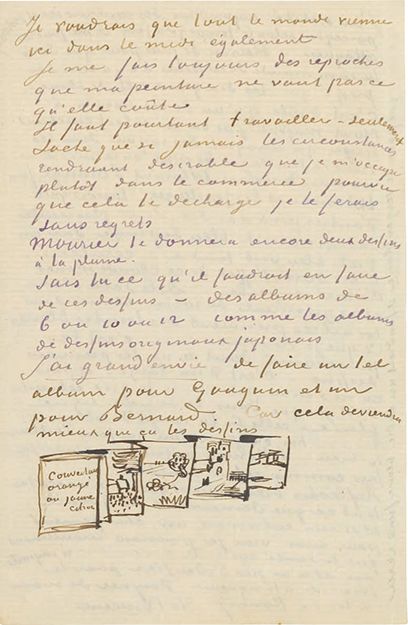 Je voudrais que tout le monde vienne
ici dans le midi également
Je me fais toujours des reproches
que ma peinture ne vaut pas ce
qu'elle coûte.
Il faut pourtant travailler – seulement
sache que si jamais les circonstances
rendraient desirable que je m'occupe
plutôt dans le commerce pourvu
que cela te decharge je le ferais
sans regrets
Mourier te donnera encore deux dessins
à la plume.
Sais tu ce qu'il faudrait en faire
de ces dessins – des albums de
6 ou 10 ou 12 comme les albums
de dessins originaux japonais
J'ai grand envie de faire un tel
album pour Gauguin et un
pour Bernard. Car cela deviendra
mieux que ça les dessins
Couverture
orangé
ou jaune